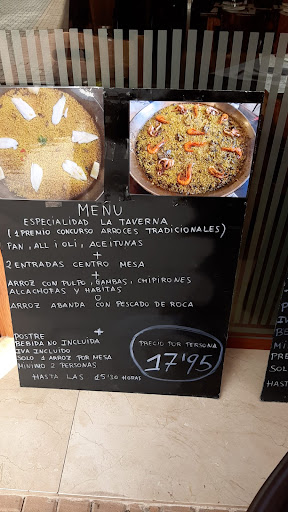 MENU
ESPECIALIDAD LA TAVERNA
(1 PREMIO CONCURSO ARROCES TRADICIONALES)
PAN, ALL I OLI, ACEITUNAS
+
2 ENTRADAS CENTRO MESA
+
ARROZ CON PULPO, GAMBAS, CHIPIRONES
ALCACHOFAS Y HABITAS
O
ARROZ ABANDA CON PESCADO DE ROCA
+
POSTRE
BEBIDA NO INCLUIDA
IVA INCLUIDO
SOLO 1 ARROZ POR MESA
MINIMO 2 PERSONAS
HASTA LAS 15'30 HORAS
PRECIO POR PERSONA
17'95